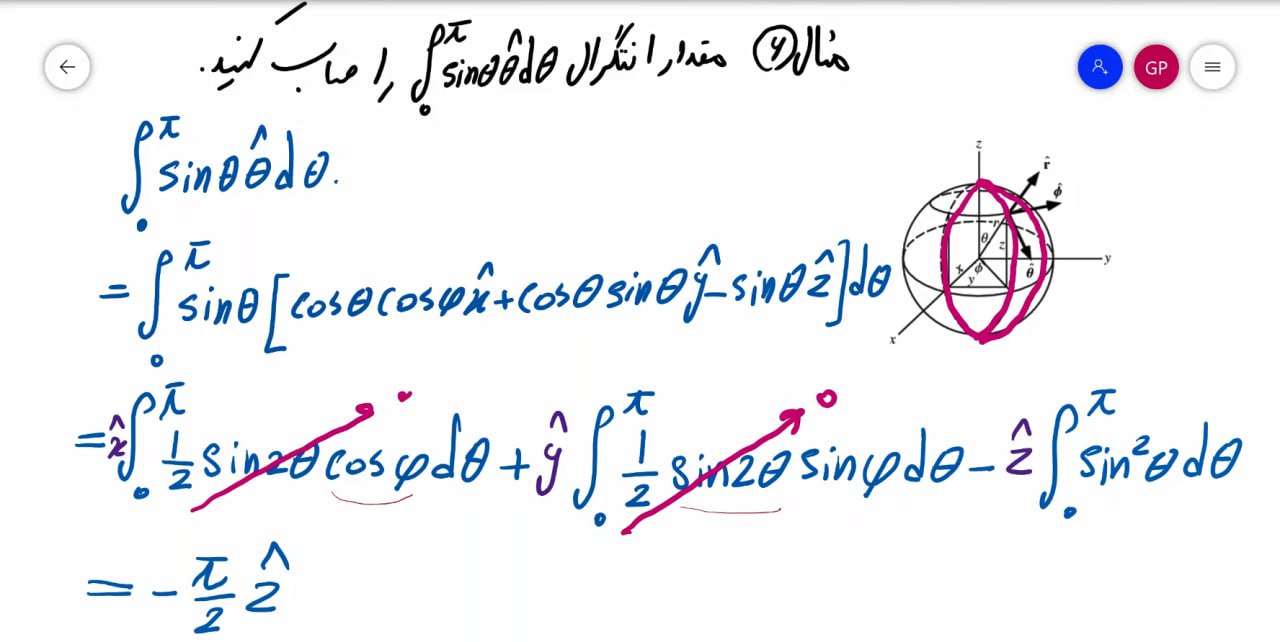 مثال ۷) مقدار انتگرال ∫₀^π sinθ θ̂ dθ را حساب کنید.
GP
∫₀^π sinθ θ̂ dθ.
= ∫₀^π sinθ [cosθ cosφ x̂ + cosθ sinθ ŷ - sinθ ẑ] dθ
= x̂ ∫₀^π 1/2 sin2θ cosφ dθ + ŷ ∫₀^π 1/2 sin2θ sinφ dθ - ẑ ∫₀^π sin²θ dθ
0 0
= - π/2 ẑ
z
r̂
φ̂
r
θ
z
y
x
φ
y
θ̂
x